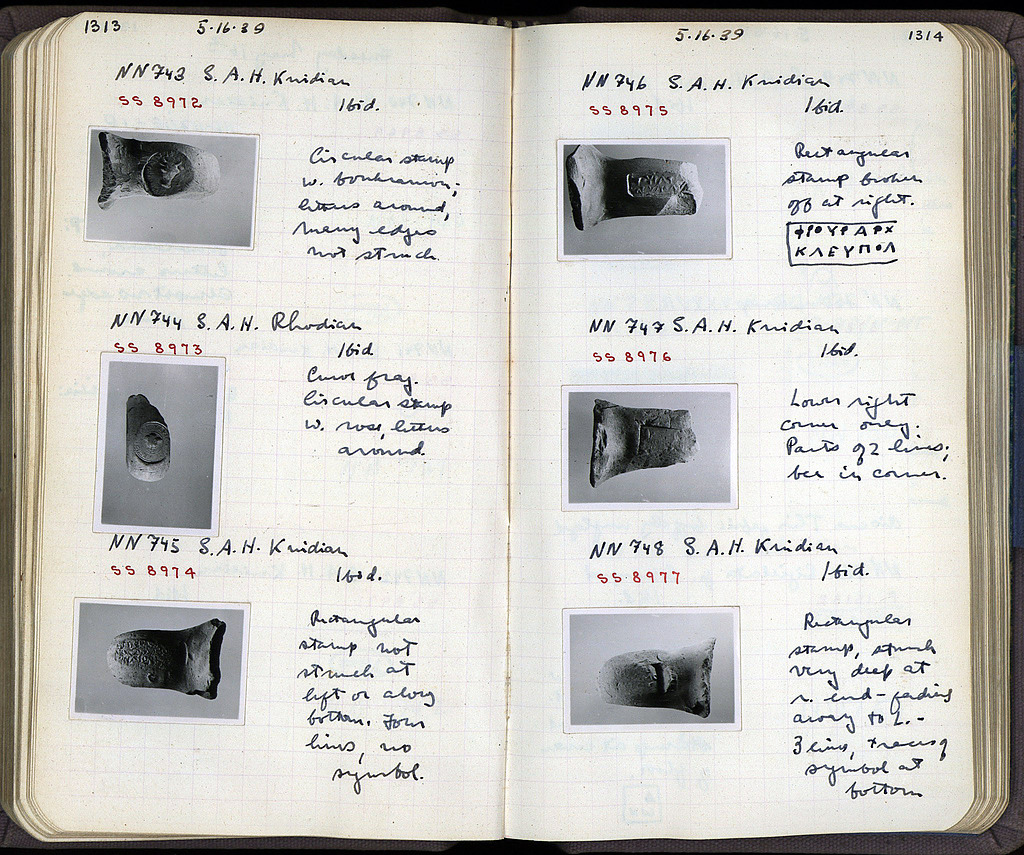 1313 5·16·39
NN 743 S.A.H. Knidian
SS 8972 Ibid.
Circular stamp
w. boukranion;
letters around,
many edges
not struck.
NN 744 S.A.H. Rhodian
SS 8973 Ibid.
Curved frag.
Circular stamp
w. rose, letters
around.
NN 745 S.A.H. Knidian
SS 8974 Ibid.
Rectangular
stamp not
struck at
left or along
bottom. Four
lines, no
symbol.
5·16·39 1314
NN 746 S.A.H. Knidian
SS 8975 Ibid.
Rectangular
stamp broken
off at right.
ΦΡΟΥΡΑΡΧ
ΚΛΕΥΠΟΛ
NN 747 S.A.H. Knidian
SS 8976 Ibid.
Lower right
corner only.
Parts of 2 lines;
bee in corner.
NN 748 S.A.H. Knidian
SS 8977 Ibid.
Rectangular
stamp, struck
very deep at
r. end - fading
away to L. -
3 lines, traces of
symbol at
bottom